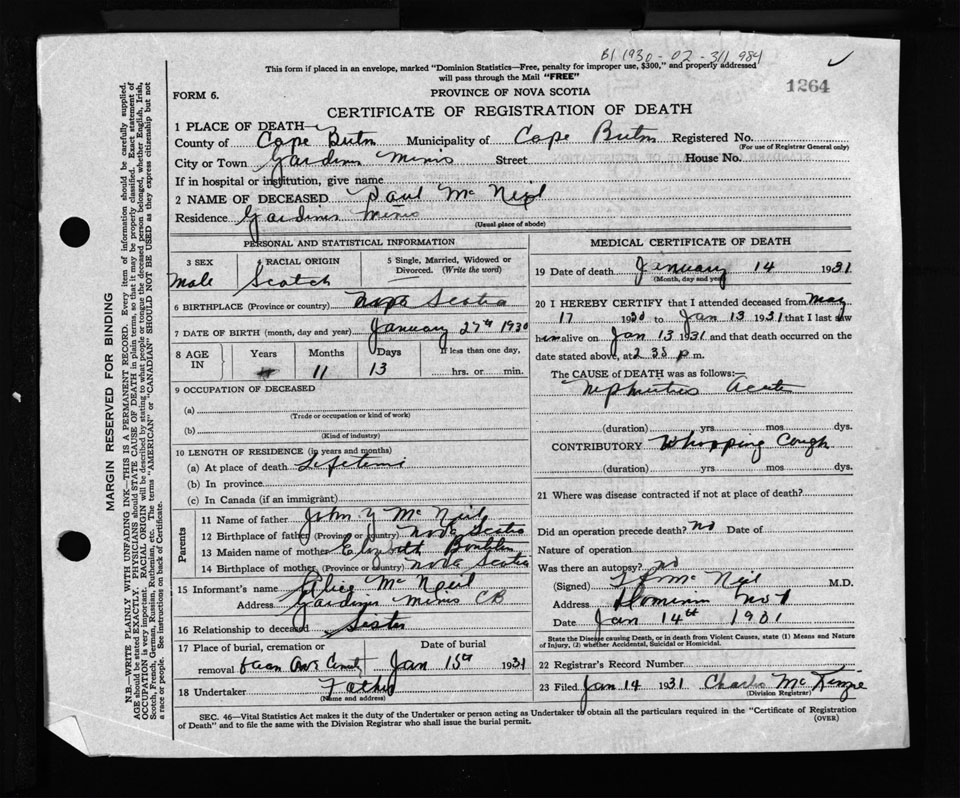 B1 1930 - 02 - 311 984
This form if placed in an envelope, marked "Dominion Statistics—Free, penalty for improper use, $300," and properly addressed
will pass through the Mail "FREE"
1264
FORM 6.
PROVINCE OF NOVA SCOTIA
CERTIFICATE OF REGISTRATION OF DEATH
1 PLACE OF DEATH—
County of Cape Breton Municipality of Cape Breton Registered No.
(For use of Registrar General only)
City or Town Gardiner Mines Street House No.
If in hospital or institution, give name
2 NAME OF DECEASED Paul Mc Neil
Residence Gardiner Mines
(Usual place of abode)
PERSONAL AND STATISTICAL INFORMATION
3 SEX
Male
4 RACIAL ORIGIN
Scotch
5 Single, Married, Widowed or
Divorced. (Write the word)
6 BIRTHPLACE (Province or country) Nova Scotia
7 DATE OF BIRTH (month, day and year) January 27th 1930
8 AGE IN
Years Months Days If less than one day,
11 13 hrs. or min.
9 OCCUPATION OF DECEASED
(a)
(Trade or occupation or kind of work)
(b)
(Kind of industry)
10 LENGTH OF RESIDENCE (in years and months)
(a) At place of death Lifetime
(b) In province
(c) In Canada (if an immigrant)
Parents
11 Name of father John Y Mc Neil
12 Birthplace of father (Province or country) Nova Scotia
13 Maiden name of mother Elizabeth
14 Birthplace of mother (Province or country) Nova Scotia
15 Informant's name Alice Mc Neil
Address Gardiner Mines CB
16 Relationship to deceased Sister
17 Place of burial, cremation or Date of burial
removal Jan 15th 1931
18 Undertaker Father
(Name and address)
MEDICAL CERTIFICATE OF DEATH
19 Date of death January 14 1931
(Month, day and year)
20 I HEREBY CERTIFY that I attended deceased from May
17 1930 to Jan 13 1931 that I last saw
him alive on Jan 13 1931 and that death occurred on the
date stated above, at 2 35 p m.
The CAUSE OF DEATH was as follows:—
Nephritis Acute
(duration) yrs mos dys.
CONTRIBUTORY Whooping Cough
(duration) yrs mos dys.
21 Where was disease contracted if not at place of death?
Did an operation precede death? No Date of
Nature of operation
Was there an autopsy? No
(Signed) Mc Neil M.D.
Address Dominion No 1
Date Jan 14th 1931
State the Disease causing Death, or in death from Violent Causes, state (1) Means and Nature
of Injury, (2) whether Accidental, Suicidal or Homicidal.
22 Registrar's Record Number
23 Filed Jan 14 1931 Charles Mc Kenzie
(Division Registrar)
SEC. 46—Vital Statistics Act makes it the duty of the Undertaker or person acting as Undertaker to obtain all the particulars required in the "Certificate of Registration
of Death" and to file the same with the Division Registrar who shall issue the burial permit.
(OVER)
MARGIN RESERVED FOR BINDING
N.B.—WRITE PLAINLY WITH UNFADING INK—THIS IS A PERMANENT RECORD. Every item of information should be carefully supplied.
AGE should be stated EXACTLY. PHYSICIANS should STATE CAUSE OF DEATH in plain terms, so that it may be properly classified. Exact statement of
OCCUPATION is very important. RACIAL ORIGIN will be described by stating to what people or tongue the deceased person belonged, whether English, Irish,
Scotch, French, German, Russian, Ruthenian, etc. The terms "AMERICAN" or "CANADIAN" SHOULD NOT BE USED as they express citizenship but not
a race or people. See instructions on back of Certificate.